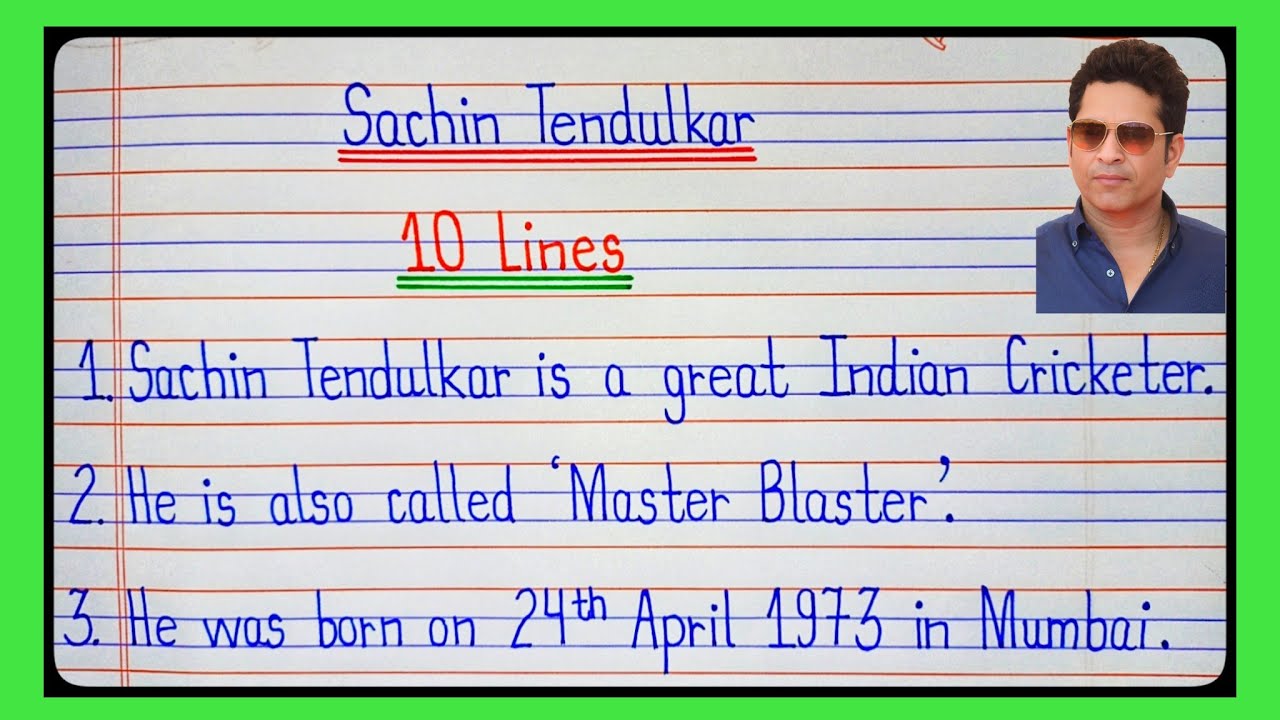 Sachin Tendulkar
10 Lines
1. Sachin Tendulkar is a great Indian Cricketer.
2. He is also called ‘Master Blaster’.
3. He was born on 24th April 1973 in Mumbai.